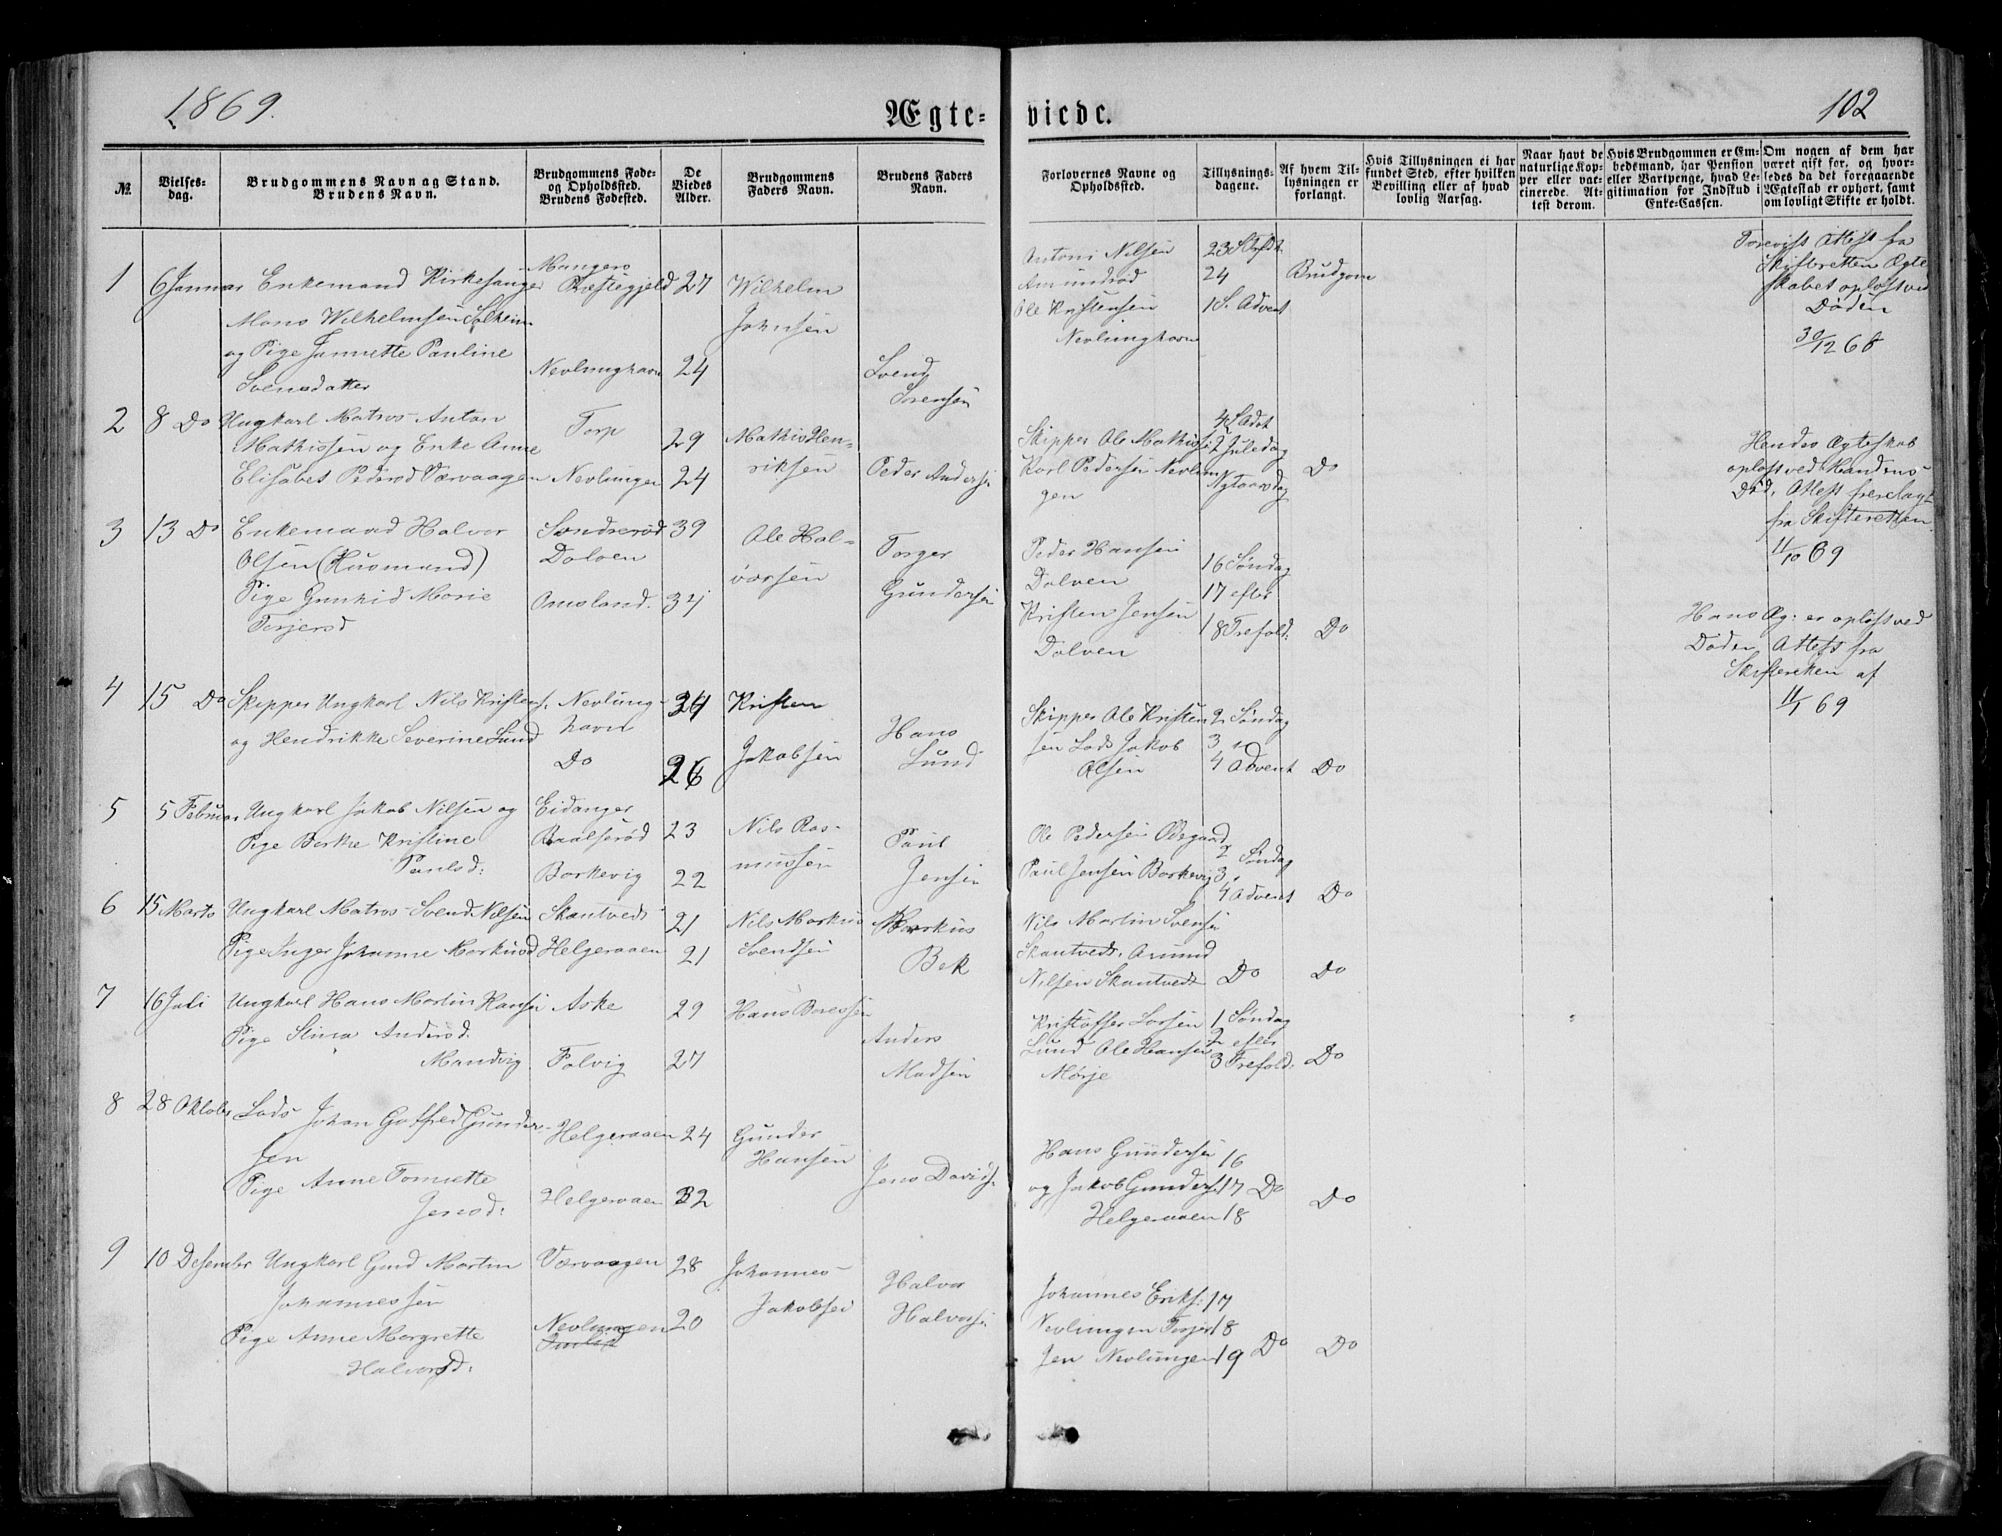 1869.
Ægte-
viede.
102
№
Vielses-
dag.
Brudgommens Navn og Stand.
Brudens Navn.
Brudgommens Føde-
og Opholdssted.
Brudens Fødested.
De
Viedes
Alder.
Brudgommens
Faders Navn.
Brudens Faders
Navn.
Forlovernes Navne og
Opholdssted.
Tillysnings-
dagene.
Af hvem Til-
lysningen er
forlangt.
Hvis Tillysningen ei har
fundet Sted, efter hvilken
Bevilling eller af hvad
lovlig Aarsag.
Naar havt de
naturlige Kop-
per eller vac-
cinerede. At-
test derom.
Hvis Brudgommen er Em-
bedsmand, har Pension
eller Vartpenge, hvad Le-
gitimation for Indskud i
Enke-Cassen.
Om nogen af dem har
været gift før, og hvor-
ledes da det foregaaende
Ægteskab er ophørt, samt
om lovligt Skifte er holdt.
1
6 Januar
Enkemand Kirkesanger
Mons Wilhelmsen Solheim
og Pige Jannette Pauline
Svensdatter
Mangers
Præstegjeld
Nevlunghavn
27
24
Wilhelm
Johnsen
Svend
Sørensen
Antoni Nilsen
Amundrød
Ole Kristensen
Nevlunghavn
23 S
24
1 S. Advent
Brudgom
Forevist Attest fra
Skifteretten Ægte
skabet opløst ved
Døden
30/12 68
2
8 Do
Ungkarl Matros Anton
Mathissen og Enke Anne
Elisabet Pedersd Værvaagen
Torp
Nevlungen
29
24
Mathis Hen-
riksen
Peder Andersen
Skipper Ole Mathisse
Karl Pedersen Nevlun
gen
4 S Advt
2 Juledag
Nytaarsdag
Do
Hendes Ægteskab
opløst ved Mandens
Død, Attest fremlagt
fra Skifteretten
11/10 69
3
13 Do
Enkemand Halvor
Olsen (Husmand)
Pige Gunhild Marie
Torjersd
Søndrerød
Dolven
Omsland.
39
34
Ole Hal-
vorsen
Torger
Gundersen
Peder Hansen
Dolven
Kristen Jensen
Dolven
16 Søndag
17 efter
18 Trefold:
Do
Hans Æg: er opløst ved
Døden, Attest fra
Skifteretten af
11/1 69
4
15 Do
Skipper Ungkarl Nils Kristens.
og Hendrikke Severine Lund
Nevlung-
havn
Do
34
26
Kristen
Jakobsen
Hans
Lund
Skipper Ole Kristen
sen Lods Jakob
Olsen
2 Søndag
3 "
4 Advent
Do
5
5 Februar
Ungkarl Jakob Nilsen og
Pige Berthe Kristine
Paulsd:
Eidanger
Barkevig
23
22
Nils Ras-
mussen
Paul
Jensen
Ole Pedersen Ødegaard
Paul Jensen Barkevig
2 Søndag
3 "
4 Advent
Do
6
15 Marts
Ungkarl Matros Svend Nilsen
Pige Inger Johanne Markusd
Skantvedt
Helgeraaen
21
21
Nils Markus
Svendsen
Markus
Bek
Nils Martin Svensen
Skantvedt. Amund
Nilsen Skantvedt
Do
Do
7
16 Juli
Ungkarl Hans Martin Hansen
Pige Stina Andersd.
Manvig
Aske
Folvig
29
27
Hans Boressen
Anders
Madsen
Kristoffer Larsen
Lund Ole Hansen
Mørje
1 Søndag
2 efter
3 Trefold:
Do
8
28 Oktober
Lods Johan Gotfred Gunder-
sen
Pige Anne Tomette
Jensd:
Helgeraaen
Helgeraaen
24
32
Gunder
Hansen
Jens Davids.
Hans Gundersen
og Jakob Gunders
Helgeraaen
16
17 Do
18
Do
9
10 Desember
Ungkarl Gind Martin
Johannessen
Pige Anne Margrette
Halvorsd:
Værvaagen
Nevlungen
28
20
Johannes
Jakobsen
Halvor
Halvorsen
Johannes Eriks:
Nevlungen Torjer
sen Nevlungen
17
18
19 Do
Do